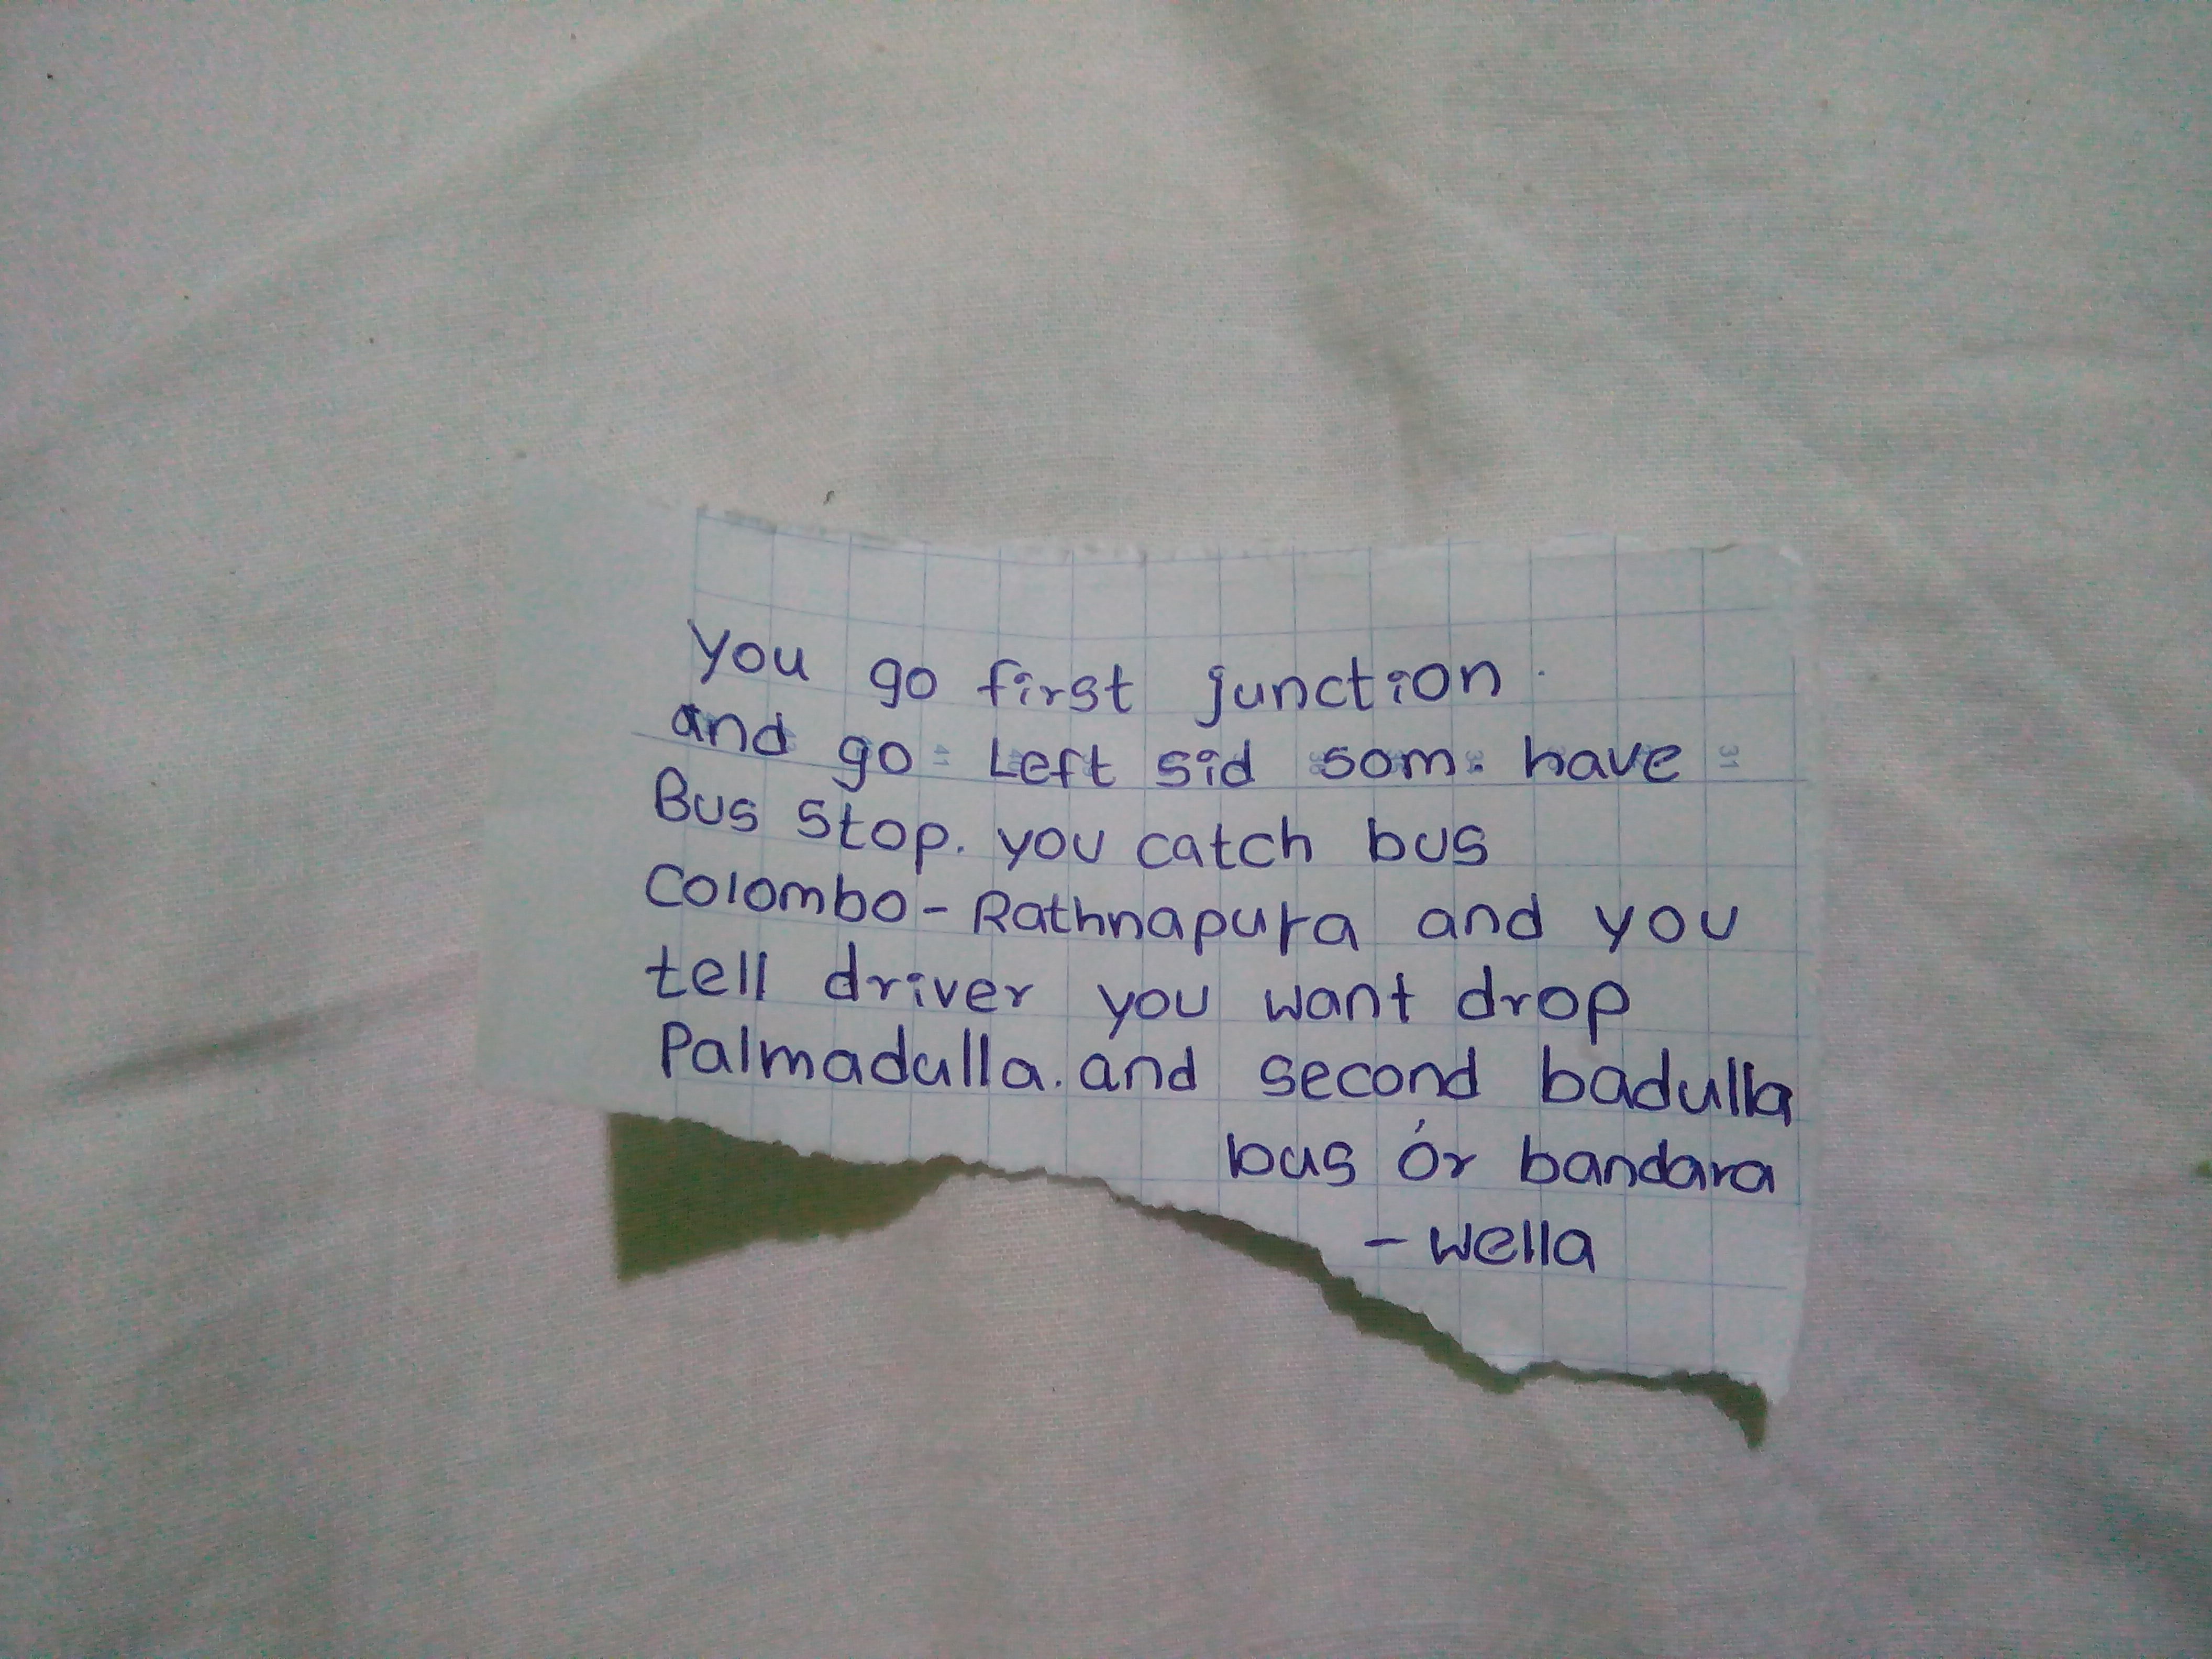 You go first junction.
and go Left sid som. have
Bus Stop. you catch bus
Colombo - Rathnapura and you
tell driver you want drop
Palmadulla. and second badulla
bus or bandara
- Wella